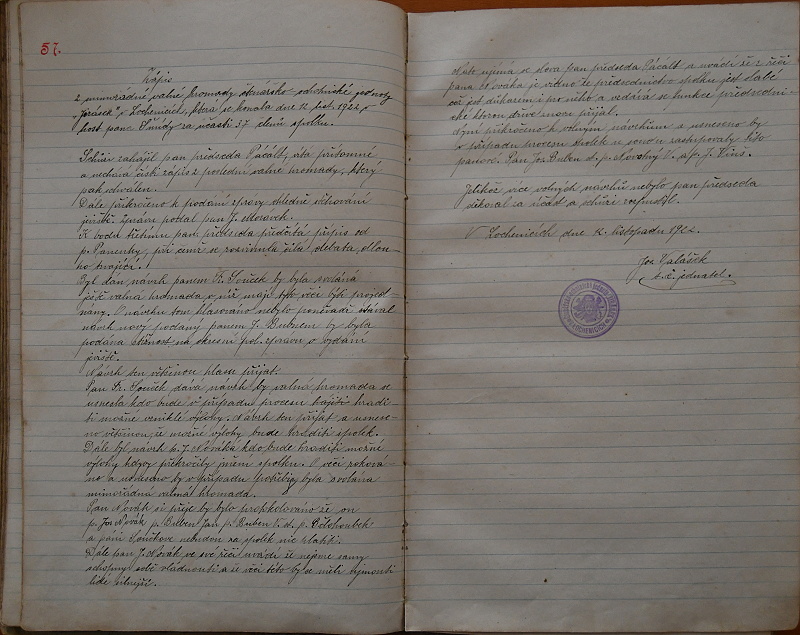 57.
Zápis
z mimořádné valné hromady čtenářsko-ochotnické jednoty
„Jirásek" v Lochenicích, která se konala dne 12. list. 1922 v
host. pana Smudy za účasti 37 členů spolku.
Schůzi zahájil pan předseda Pácalt, vítá přítomné
a nechává čísti zápis z poslední valné hromady, který
pak schválen.
Dále přikročeno k podání zprávy ohledně
jeviště. Zprávu podal pan J. Moravek.
K bodu třetímu pan předseda předčítá přípis od
p. Panenky, při čemž se rozvinula čilá debata, dlou-
ho trvající.
Byl dán návrh panem Fr. Souček by byla svolána
ještě valná hromada v níž mají tyto věci býti projed-
nány. O návrhu tom hlasováno nebylo poněvadž
návrh nový podaný panem J. Bubnem by byla
podána stížnost na okresní pol. správu o vydání
Návrh ten většinou hlasů přijat.
Pan Fr. Souček dává návrh by valná hromada se
usnesla kdo bude v případu procesu hraditi
možné vzniklé výlohy. Návrh ten přijat a usnese-
no většinou, že možné výlohy bude hraditi spolek.
Dále byl návrh p. J. Nováka kdo bude hraditi možné
výlohy kdyby překročily jmění spolku. O věci roková-
no a usneseno by v případu potřeby byla svolána
mimořádná valná hromada.
Pan Novák si přeje by bylo protokolováno že on
p. Jos Novák p. Buben Jan p. Buben
a paní Součkova nebudou za spolek nic platiti.
Dále pan J. Novák ve své řeči uvádí že nejsme samy
schopny sobě vládnouti a že věci této by se měli ujmouti
lidé silnější.
Nato ujímá se slova pan předseda Pácalt a uvádí že z řeči
pana Nováka je vidno že předsednictvo spolku jest slabé
což jest důkazem i pro něho a vzdává se funkce předsednic-
ké kterou dříve znovu přijal.
Dále přikročeno k volným návrhům a usneseno by
v případu procesu spolek u soudu zastupovaly tito
pánové. Pan Jos Buben
Jelikož více volných návrhů nebylo pan předseda
děkoval za účast a schůzi rozpustil.
V Lochenicích dne 12. listopadu 1922.
Jos Valášek
t. č. jednatel.